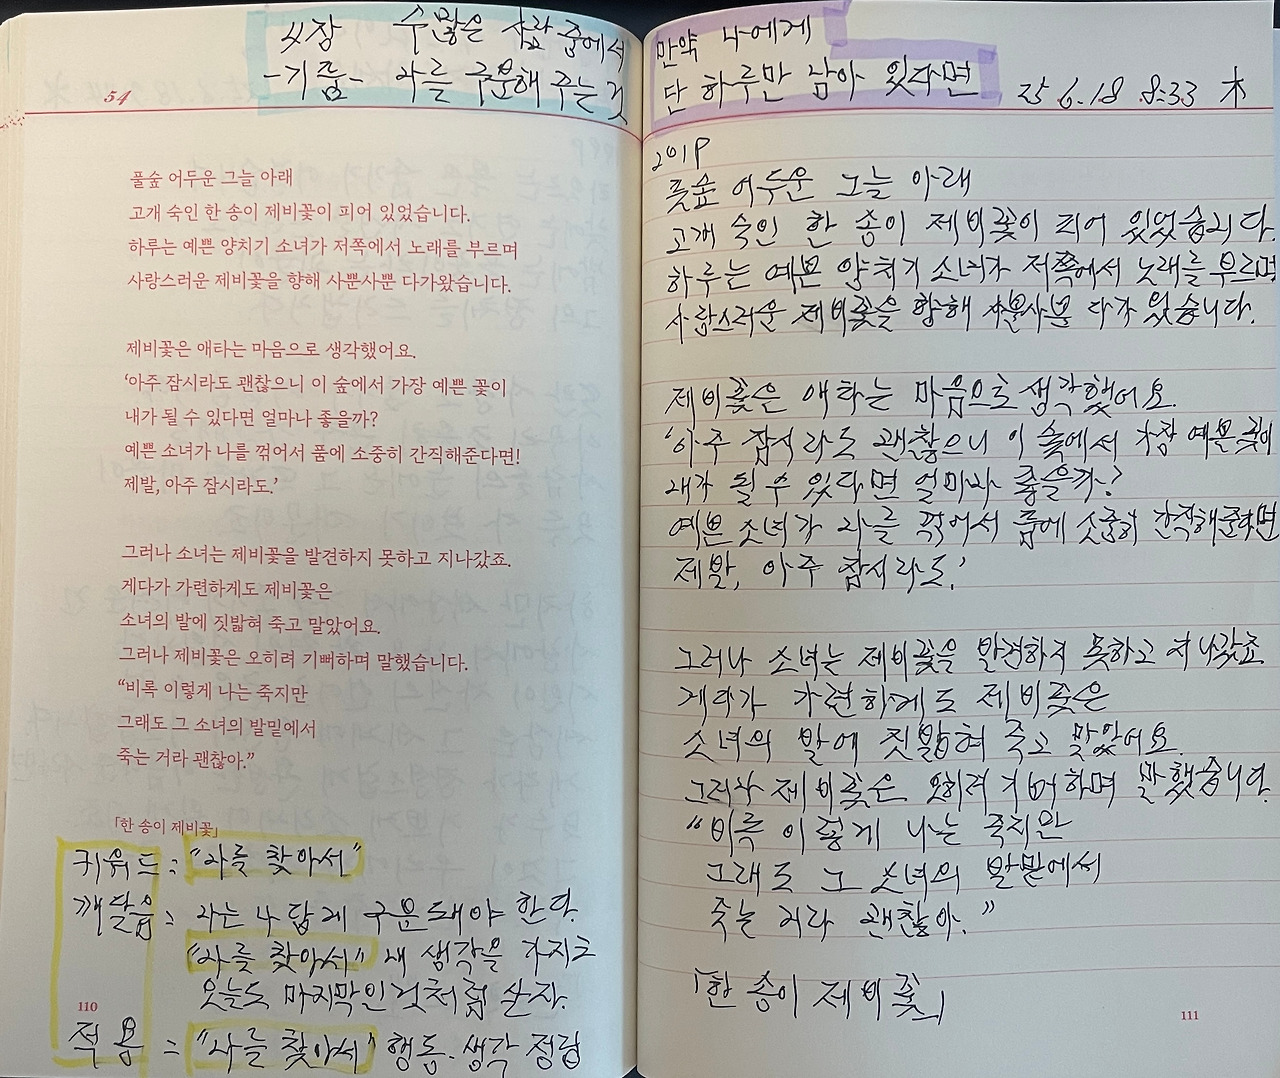 4장 수많은 사람 중에서
-기쁨- 나를 구분해 주는 것
54
풀숲 어두운 그늘 아래
고개 숙인 한 송이 제비꽃이 피어 있었습니다.
하루는 예쁜 양치기 소녀가 저쪽에서 노래를 부르며
사랑스러운 제비꽃을 향해 사뿐사뿐 다가왔습니다.
제비꽃은 애타는 마음으로 생각했어요.
‘아주 잠시라도 괜찮으니 이 숲에서 가장 예쁜 꽃이
내가 될 수 있다면 얼마나 좋을까?
예쁜 소녀가 나를 꺾어서 품에 소중히 간직해준다면!
제발, 아주 잠시라도.’
그러나 소녀는 제비꽃을 발견하지 못하고 지나갔죠.
게다가 가련하게도 제비꽃은
소녀의 발에 짓밟혀 죽고 말았어요.
그러나 제비꽃은 오히려 기뻐하며 말했습니다.
“비록 이렇게 나는 죽지만
그래도 그 소녀의 발밑에서
죽는 거라 괜찮아.”
「한 송이 제비꽃」
키워드 : "나를 찾아서"
깨달음 = 나는 나답게 구분돼야 한다.
"나를 찾아서" 내 생각을 가지고
오늘도 마지막인것처럼 살자.
110
적용 = "나를 찾아서" 행동. 생각 정립
만약 나에게
단 하루만 남아 있다면
25 6.18 8:33 木
풀숲 어두운 그늘 아래
고개 숙인 한 송이 제비꽃이 피어 있었습니다.
하루는 예쁜 양치기 소녀가 저쪽에서 노래를 부르며
사랑스러운 제비꽃을 향해 사뿐사뿐 다가왔습니다.
제비꽃은 애타는 마음으로 생각했어요.
'아주 잠시라도 괜찮으니 이 숲에서 가장 예쁜 꽃이
내가 될 수 있다면 얼마나 좋을까?
예쁜 소녀가 나를 꺾어서 품에 소중히 간직해준다면
제발, 아주 잠시라도.'
그러나 소녀는 제비꽃을 발견하지 못하고 지나갔죠
게다가 가련하게도 제비꽃은
소녀의 발에 짓밟혀 죽고 말았어요.
그러나 제비꽃은 오히려 기뻐하며 말했습니다.
"비록 이렇게 나는 죽지만
그래도 그 소녀의 발밑에서
죽는 거라 괜찮아."
「한 송이 제비꽃」
111